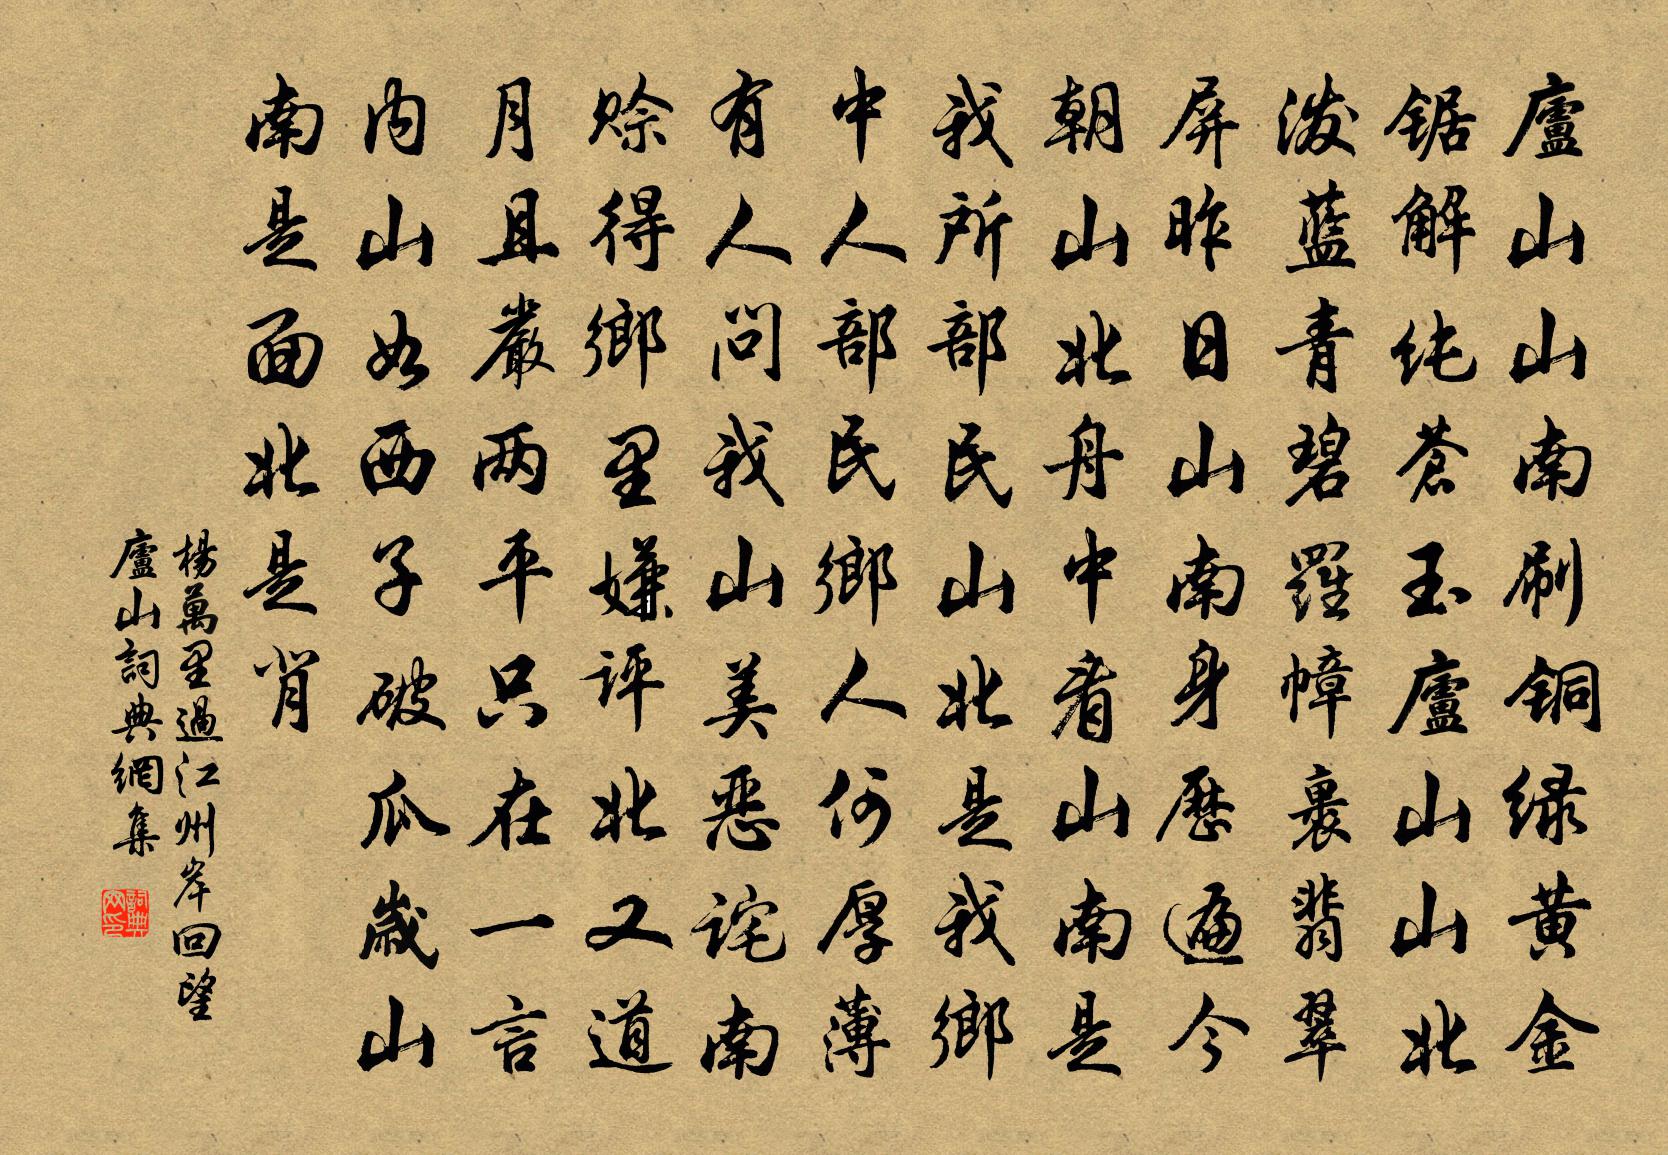 廬山山南刷铜绿黄金
锯解纯苍玉廬山山北
泼藍青碧羅幛裏翡翠
屏昨日山南身歷遍今
朝山北舟中看山南是
我所部民山北是我鄉
中人部民鄉人何厚薄
有人問我山美恶詫南
赊得鄉里嫌評北又道
月且嚴两平只在一言
内山如西子破瓜歲山
南是面北是背
楊萬里過江州岸回望
廬山詞典網集
詞典网印